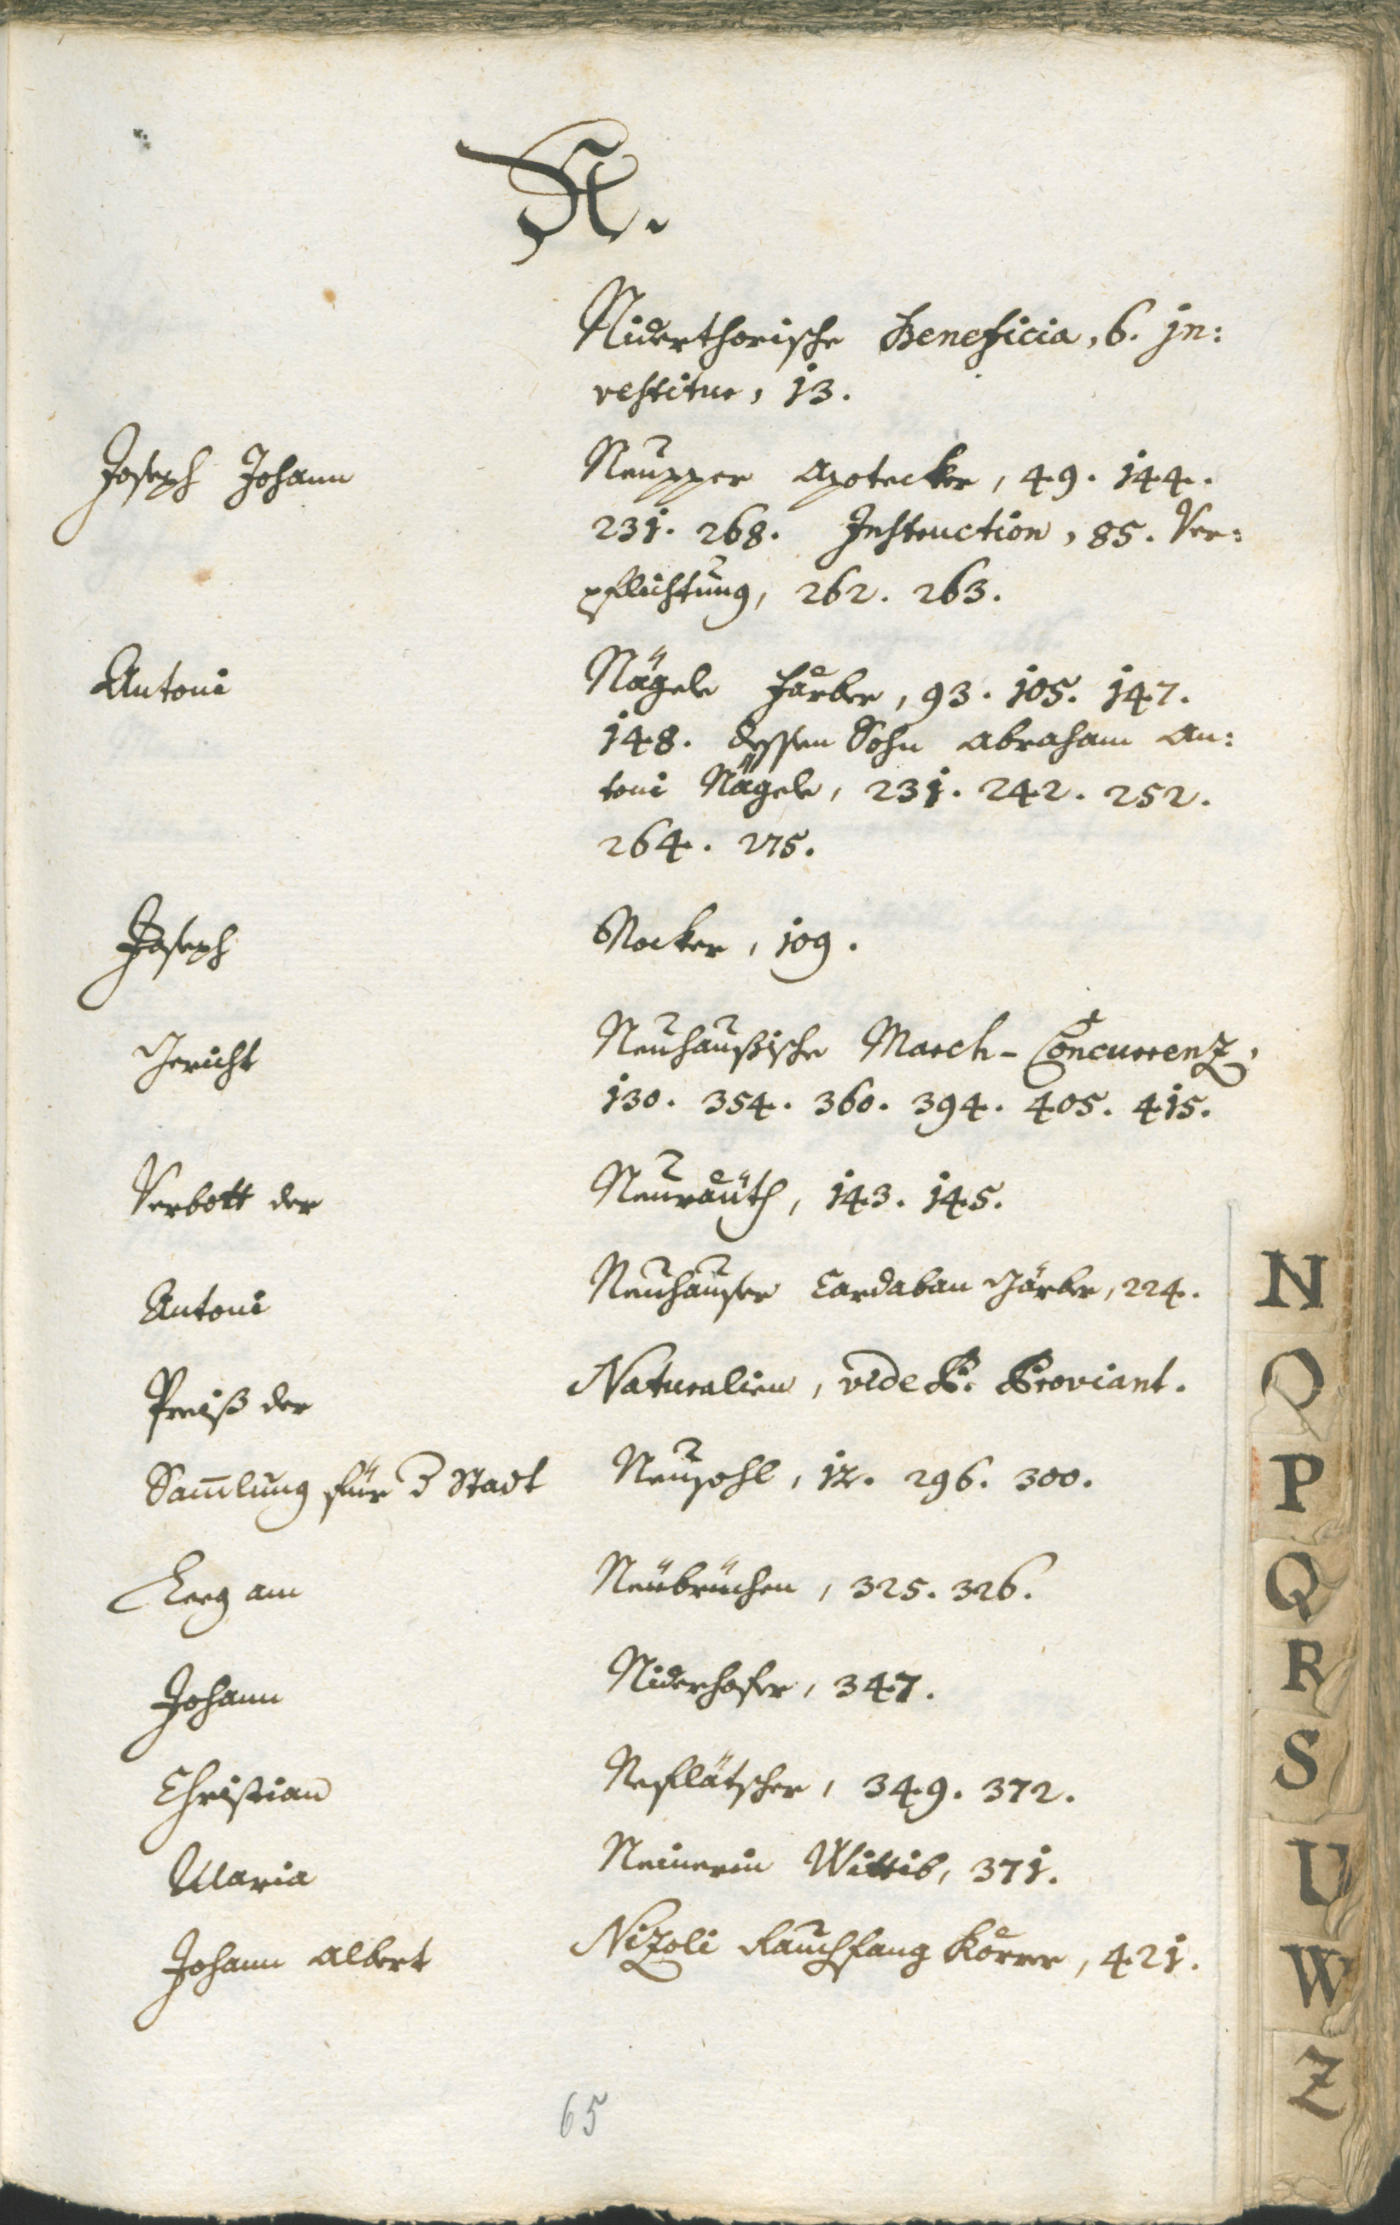 N.
Niderthorische Beneficia, 6. jn:
vestitur, 13.
Joseph Johann Neupper Apotecker, 49. 144.
231. 268. Instruction, 85. Ver:
pflichtung, 262. 263.
Antoni Nägele Färber, 93. 105. 147.
148. dessen Sohn Abraham An:
toni Nägele, 231. 242. 252.
264. 275.
Joseph Nocker, 109.
Gericht Neuhaußische March-Concurrenz,
130. 354. 360. 394. 405. 415.
Verbott der Neuräuth, 143. 145.
Antoni Neuhauser Cardaban Gärber, 224.
Preiß der Naturalien, vide P. Proviant.
Sam̄lung für d Stadt Neusohl, 12. 296. 300.
Steeg am Neübrüchen, 325. 326.
Johann Niderhofer, 347.
Christian Neflätscher, 349. 372.
Maria Neinerin Wittib, 371.
Johann Albert Nizoli Rauchfang Körer, 421.
65
N
O
P
Q
R
S
U
W
Z